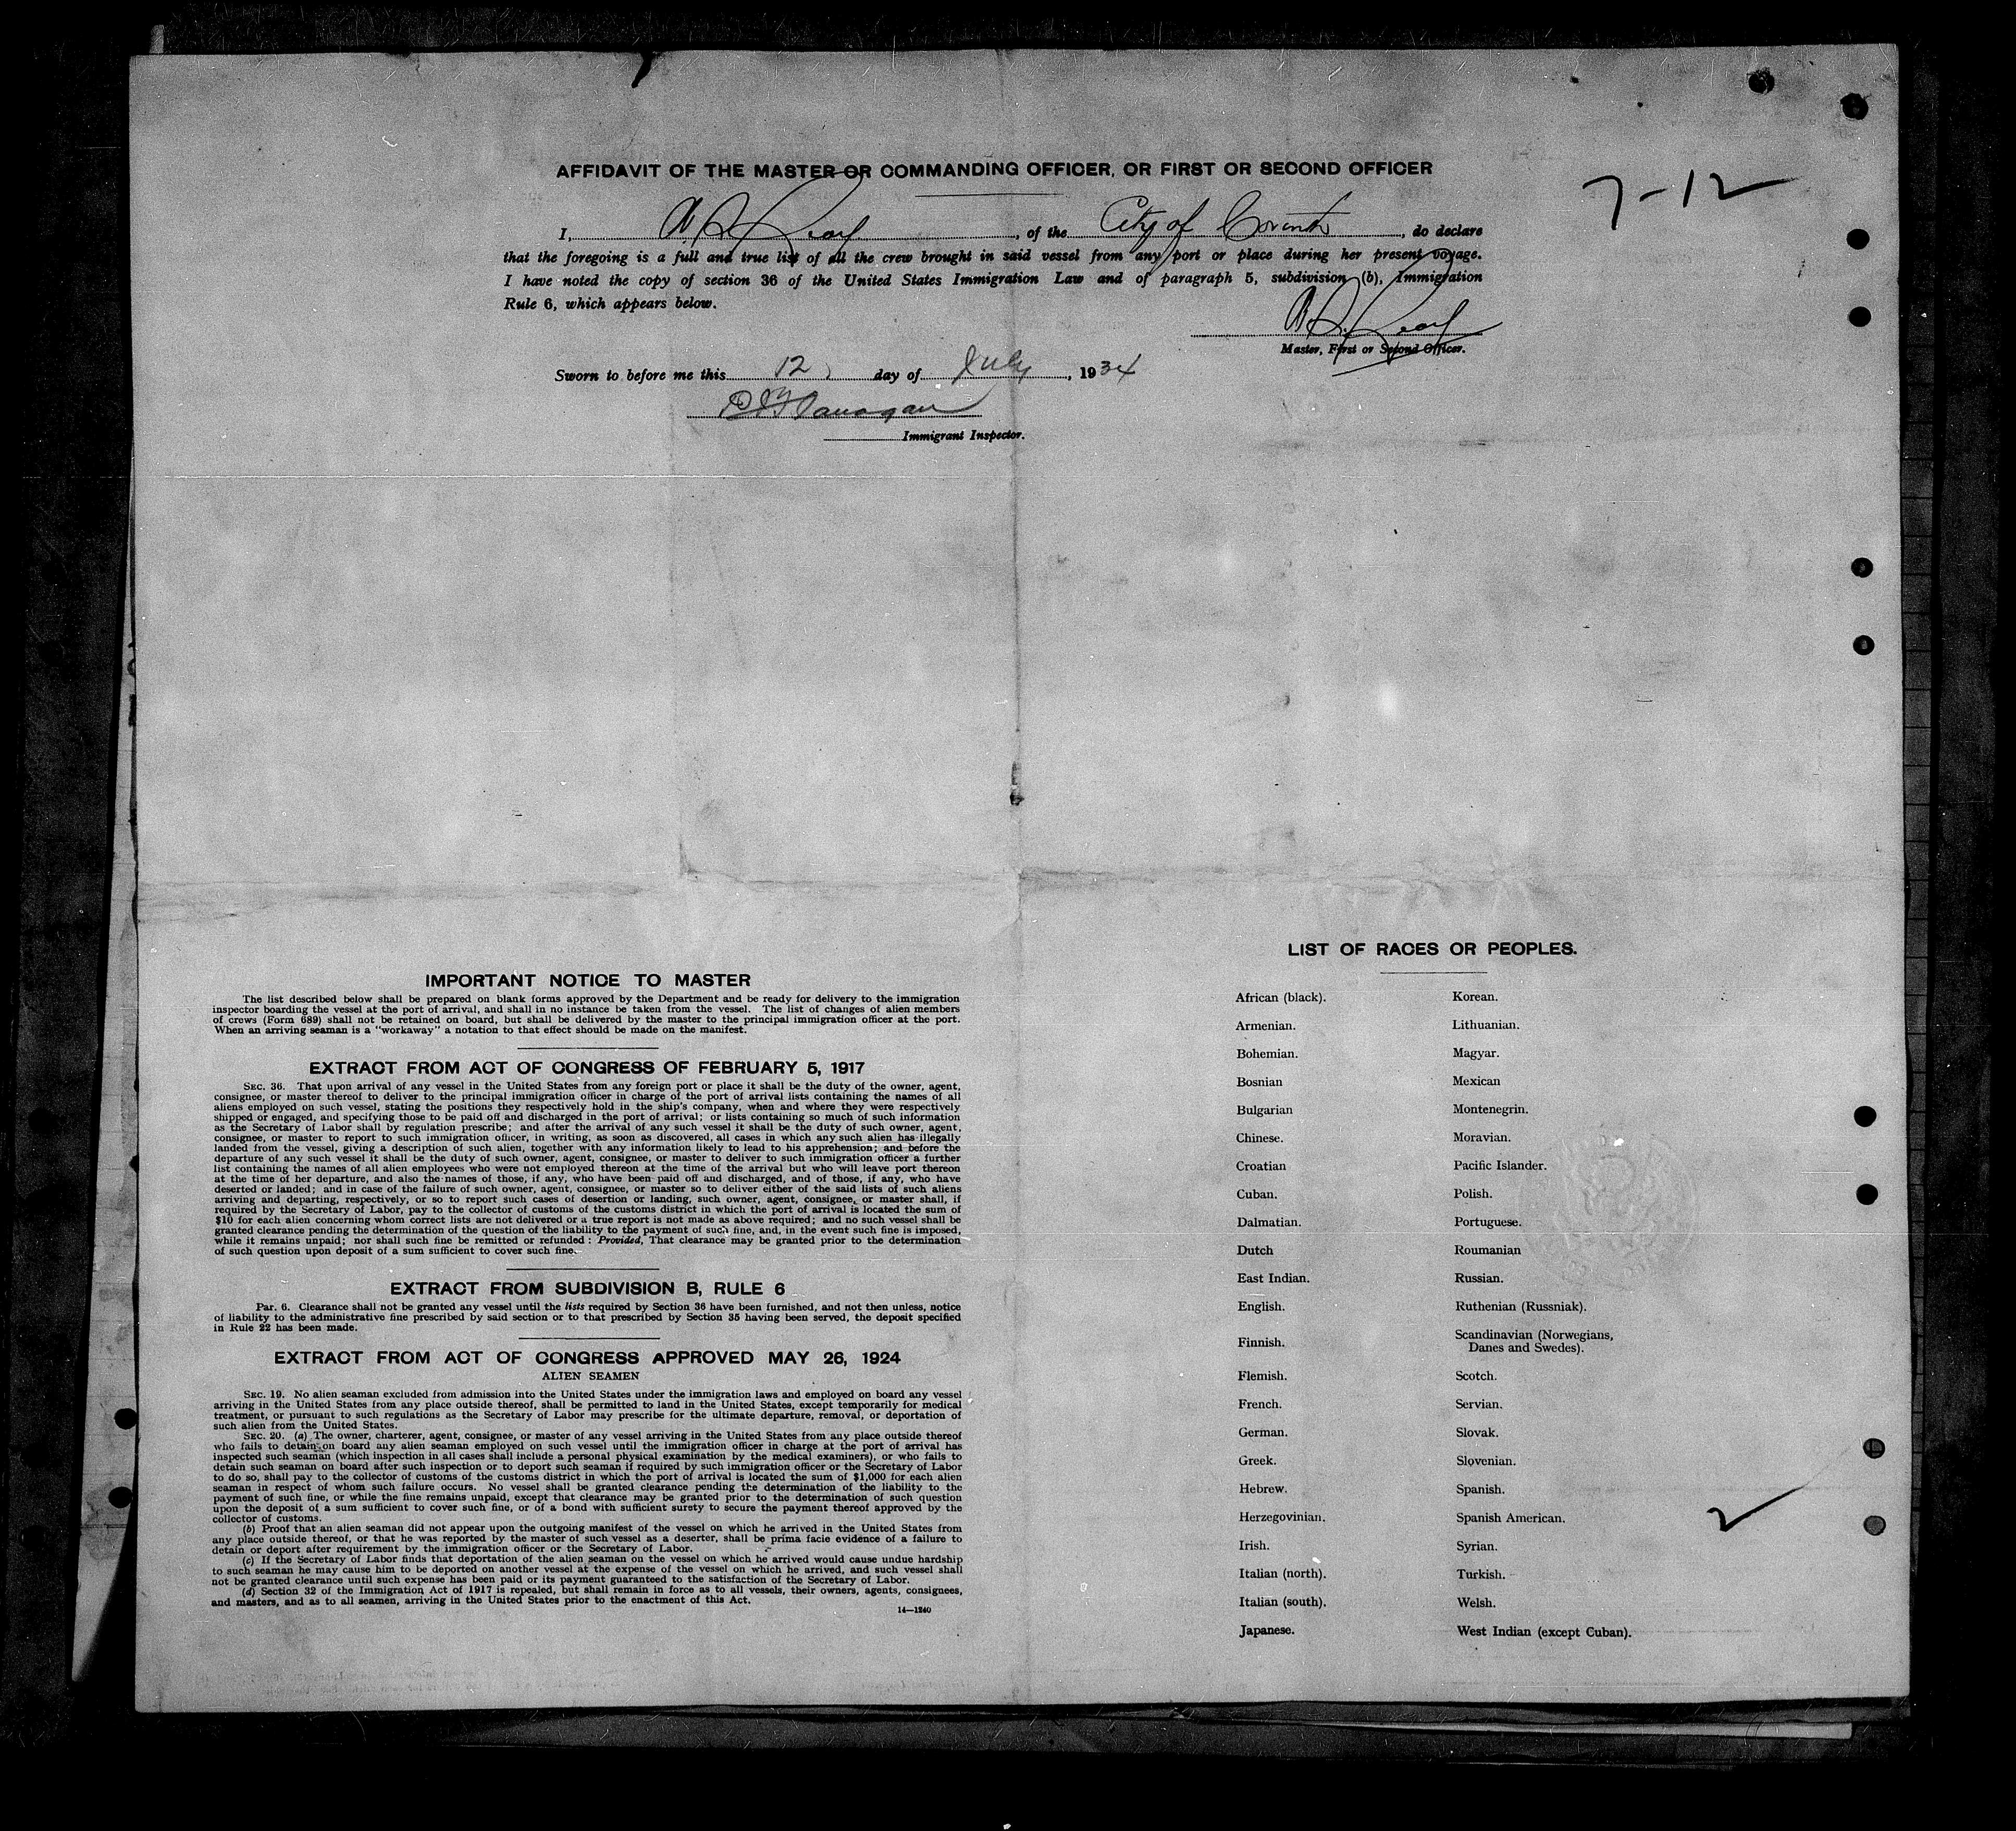 AFFIDAVIT OF THE MASTER OR COMMANDING OFFICER, OR FIRST OR SECOND OFFICER
7-12
I, of the City of , do declare
that the foregoing is a full and true list of all the crew brought in said vessel from any port or place during her present voyage.
I have noted the copy of section 36 of the United States Immigration Law and of paragraph 5, subdivision (b), Immigration
Rule 6, which appears below.
Master, First or Second Officer.
Sworn to before me this 12 day of July, 1934
Immigrant Inspector.
IMPORTANT NOTICE TO MASTER
The list described below shall be prepared on blank forms approved by the Department and be ready for delivery to the immigration
inspector boarding the vessel at the port of arrival, and shall in no instance be taken from the vessel. The list of changes of alien members
of crews (Form 689) shall not be retained on board, but shall be delivered by the master to the principal immigration officer at the port.
When an arriving seaman is a "workaway" a notation to that effect should be made on the manifest.
EXTRACT FROM ACT OF CONGRESS OF FEBRUARY 5, 1917
SEC. 36. That upon arrival of any vessel in the United States from any foreign port or place it shall be the duty of the owner, agent,
consignee, or master thereof to deliver to the principal immigration officer in charge of the port of arrival lists containing the names of all
aliens employed on such vessel, stating the positions they respectively hold in the ship's company, when and where they were respectively
shipped or engaged, and specifying those to be paid off and discharged in the port of arrival; or lists containing so much of such information
as the Secretary of Labor shall by regulation prescribe; and after the arrival of any such vessel it shall be the duty of such owner, agent,
consignee, or master to report to such immigration officer, in writing, as soon as discovered, all cases in which any such alien has illegally
landed from the vessel, giving a description of such alien, together with any information likely to lead to his apprehension; and before the
departure of any such vessel it shall be the duty of such owner, agent, consignee, or master to deliver to such immigration officer a further
list containing the names of all alien employees who were not employed thereon at the time of the arrival but who will leave port thereon
at the time of her departure, and also the names of those, if any, who have been paid off and discharged, and of those, if any, who have
deserted or landed; and in case of the failure of such owner, agent, consignee, or master so to deliver either of the said lists of such aliens
arriving and departing, respectively, or so to report such cases of desertion or landing, such owner, agent, consignee, or master shall, if
required by the Secretary of Labor, pay to the collector of customs of the customs district in which the port of arrival is located the sum of
$10 for each alien concerning whom correct lists are not delivered or a true report is not made as above required; and no such vessel shall be
granted clearance pending the determination of the question of the liability to the payment of such fine, and, in the event such fine is imposed,
while it remains unpaid; nor shall such fine be remitted or refunded: Provided, That clearance may be granted prior to the determination
of such question upon deposit of a sum sufficient to cover such fine.
EXTRACT FROM SUBDIVISION B, RULE 6
Par. 6. Clearance shall not be granted any vessel until the lists required by Section 36 have been furnished, and not then unless, notice
of liability to the administrative fine prescribed by said section or to that prescribed by Section 35 having been served, the deposit specified
in Rule 22 has been made.
EXTRACT FROM ACT OF CONGRESS APPROVED MAY 26, 1924
ALIEN SEAMEN
SEC. 19. No alien seaman excluded from admission into the United States under the immigration laws and employed on board any vessel
arriving in the United States from any place outside thereof, shall be permitted to land in the United States, except temporarily for medical
treatment, or pursuant to such regulations as the Secretary of Labor may prescribe for the ultimate departure, removal, or deportation of
such alien from the United States.
SEC. 20. (a) The owner, charterer, agent, consignee, or master of any vessel arriving in the United States from any place outside thereof
who fails to detain on board any alien seaman employed on such vessel until the immigration officer in charge at the port of arrival has
inspected such seaman (which inspection in all cases shall include a personal physical examination by the medical examiners), or who fails to
detain such seaman on board after such inspection or to deport such seaman if required by such immigration officer or the Secretary of Labor
to do so, shall pay to the collector of customs of the customs district in which the port of arrival is located the sum of $1,000 for each alien
seaman in respect of whom such failure occurs. No vessel shall be granted clearance pending the determination of the liability to the
payment of such fine, or while the fine remains unpaid, except that clearance may be granted prior to the determination of such question
upon the deposit of a sum sufficient to cover such fine, or of a bond with sufficient surety to secure the payment thereof approved by the
collector of customs.
(b) Proof that an alien seaman did not appear upon the outgoing manifest of the vessel on which he arrived in the United States from
any place outside thereof, or that he was reported by the master of such vessel as a deserter, shall be prima facie evidence of a failure to
detain or deport after requirement by the immigration officer or the Secretary of Labor.
(c) If the Secretary of Labor finds that deportation of the alien seaman on the vessel on which he arrived would cause undue hardship
to such seaman he may cause him to be deported on another vessel at the expense of the vessel on which he arrived, and such vessel shall
not be granted clearance until such expense has been paid or its payment guaranteed to the satisfaction of the Secretary of Labor.
(d) Section 32 of the Immigration Act of 1917 is repealed, but shall remain in force as to all vessels, their owners, agents, consignees,
and masters, and as to all seamen, arriving in the United States prior to the enactment of this Act.
14—1240
LIST OF RACES OR PEOPLES.
African (black).
Armenian.
Bohemian.
Bosnian
Bulgarian
Chinese.
Croatian
Cuban.
Dalmatian.
Dutch
East Indian.
English.
Finnish.
Flemish.
French.
German.
Greek.
Hebrew.
Herzegovinian.
Irish.
Italian (north).
Italian (south).
Japanese.
Korean.
Lithuanian.
Magyar.
Mexican
Montenegrin.
Moravian.
Pacific Islander.
Polish.
Portuguese.
Roumanian
Russian.
Ruthenian (Russniak).
Scandinavian (Norwegians,
Danes and Swedes).
Scotch.
Servian.
Slovak.
Slovenian.
Spanish.
Spanish American.
Syrian.
Turkish.
Welsh.
West Indian (except Cuban).